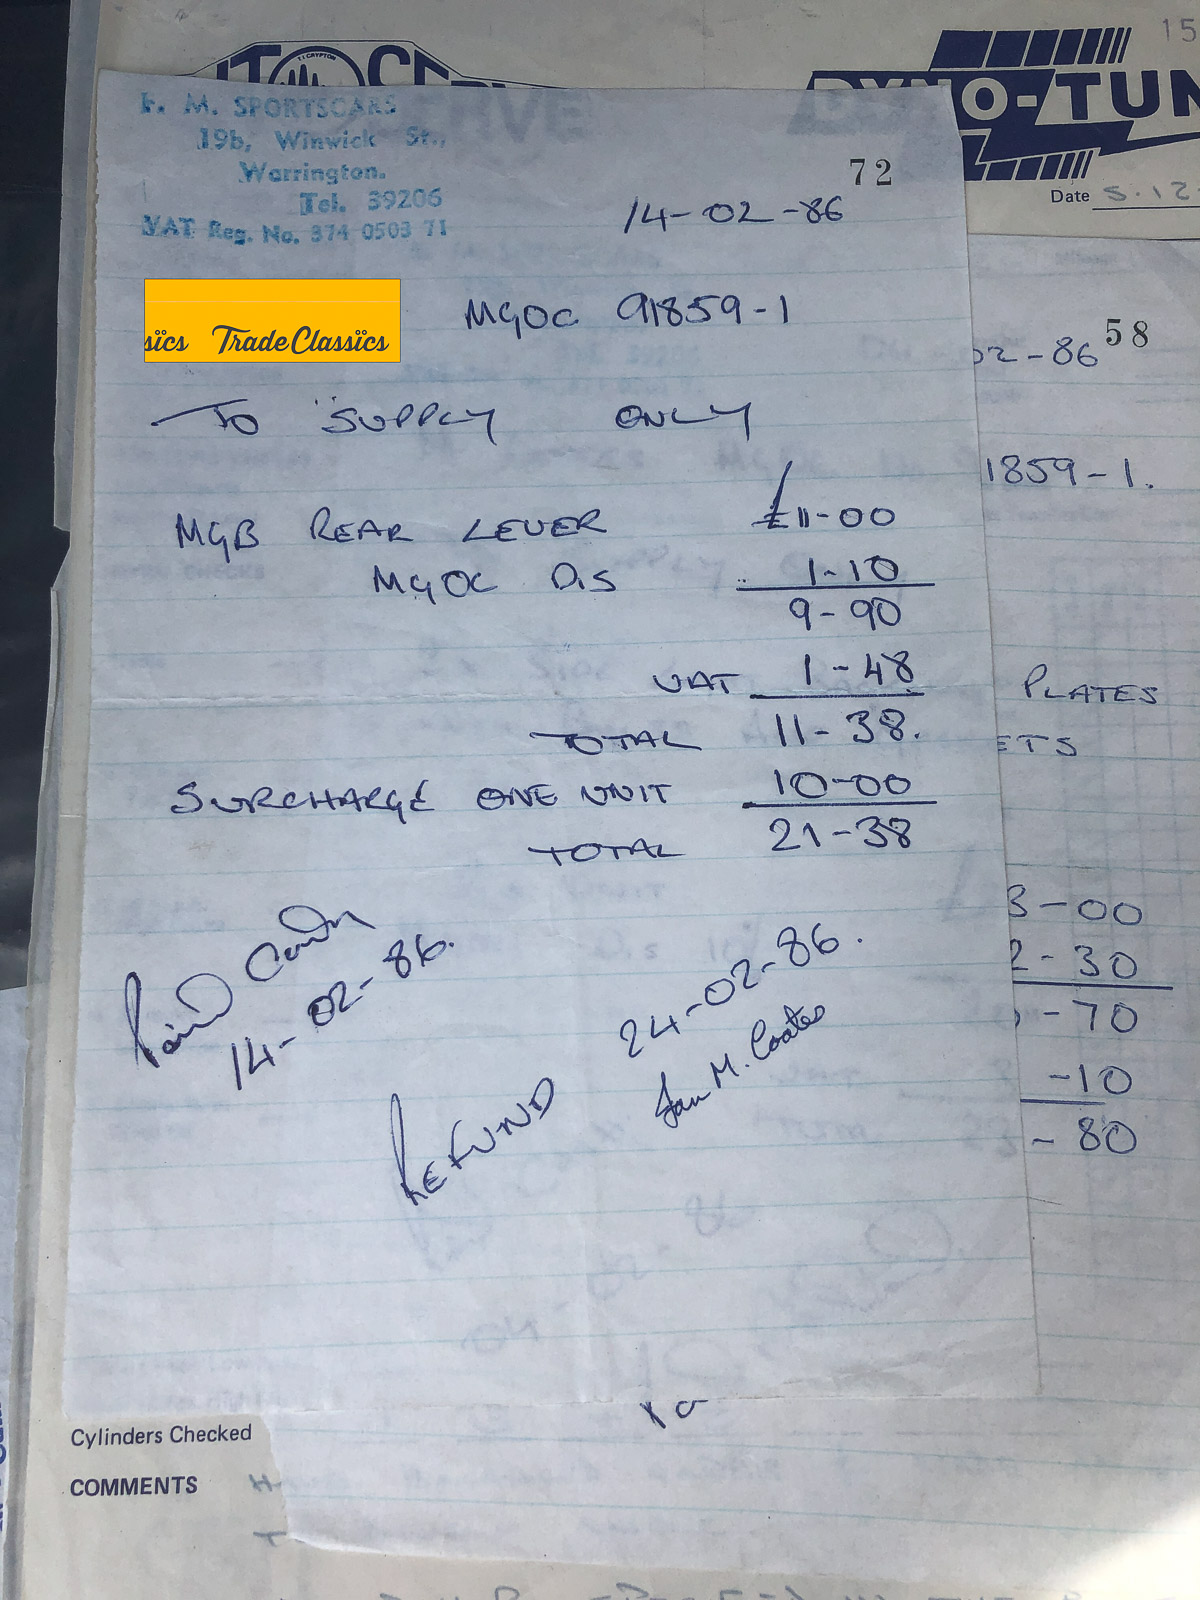 15
DYNO-TUN
Date 5.12
F. M. SPORTSCARS
19b, Winwick St.,
Warrington.
Tel. 39206
VAT Reg. No. 374 0503 71
72
14-02-86
TradeClassics
MGOC 91859-1
TO SUPPLY ONLY
MGB REAR LEVER £11-00
MGOC DIS 1-10
9-90
VAT 1-48
TOTAL 11-38.
SURCHARGE ONE UNIT 10-00
TOTAL 21-38
14-02-86.
REFUND 24-02-86.
Ian M. Coates
58
02-86
1859-1.
PLATES
ETS
3-00
2-30
-70
-10
-80
Cylinders Checked
COMMENTS